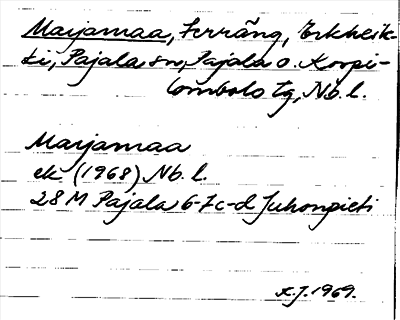 Maijamaa, terräng, Erkheik-
ki, Pajala sn, Pajala o. Korpi-
lombolo tg, Nb. l.
Maijamaa
ek. (1968) Nb. l.
28 M Pajala 6-7c-d Juhonpieti
1969.